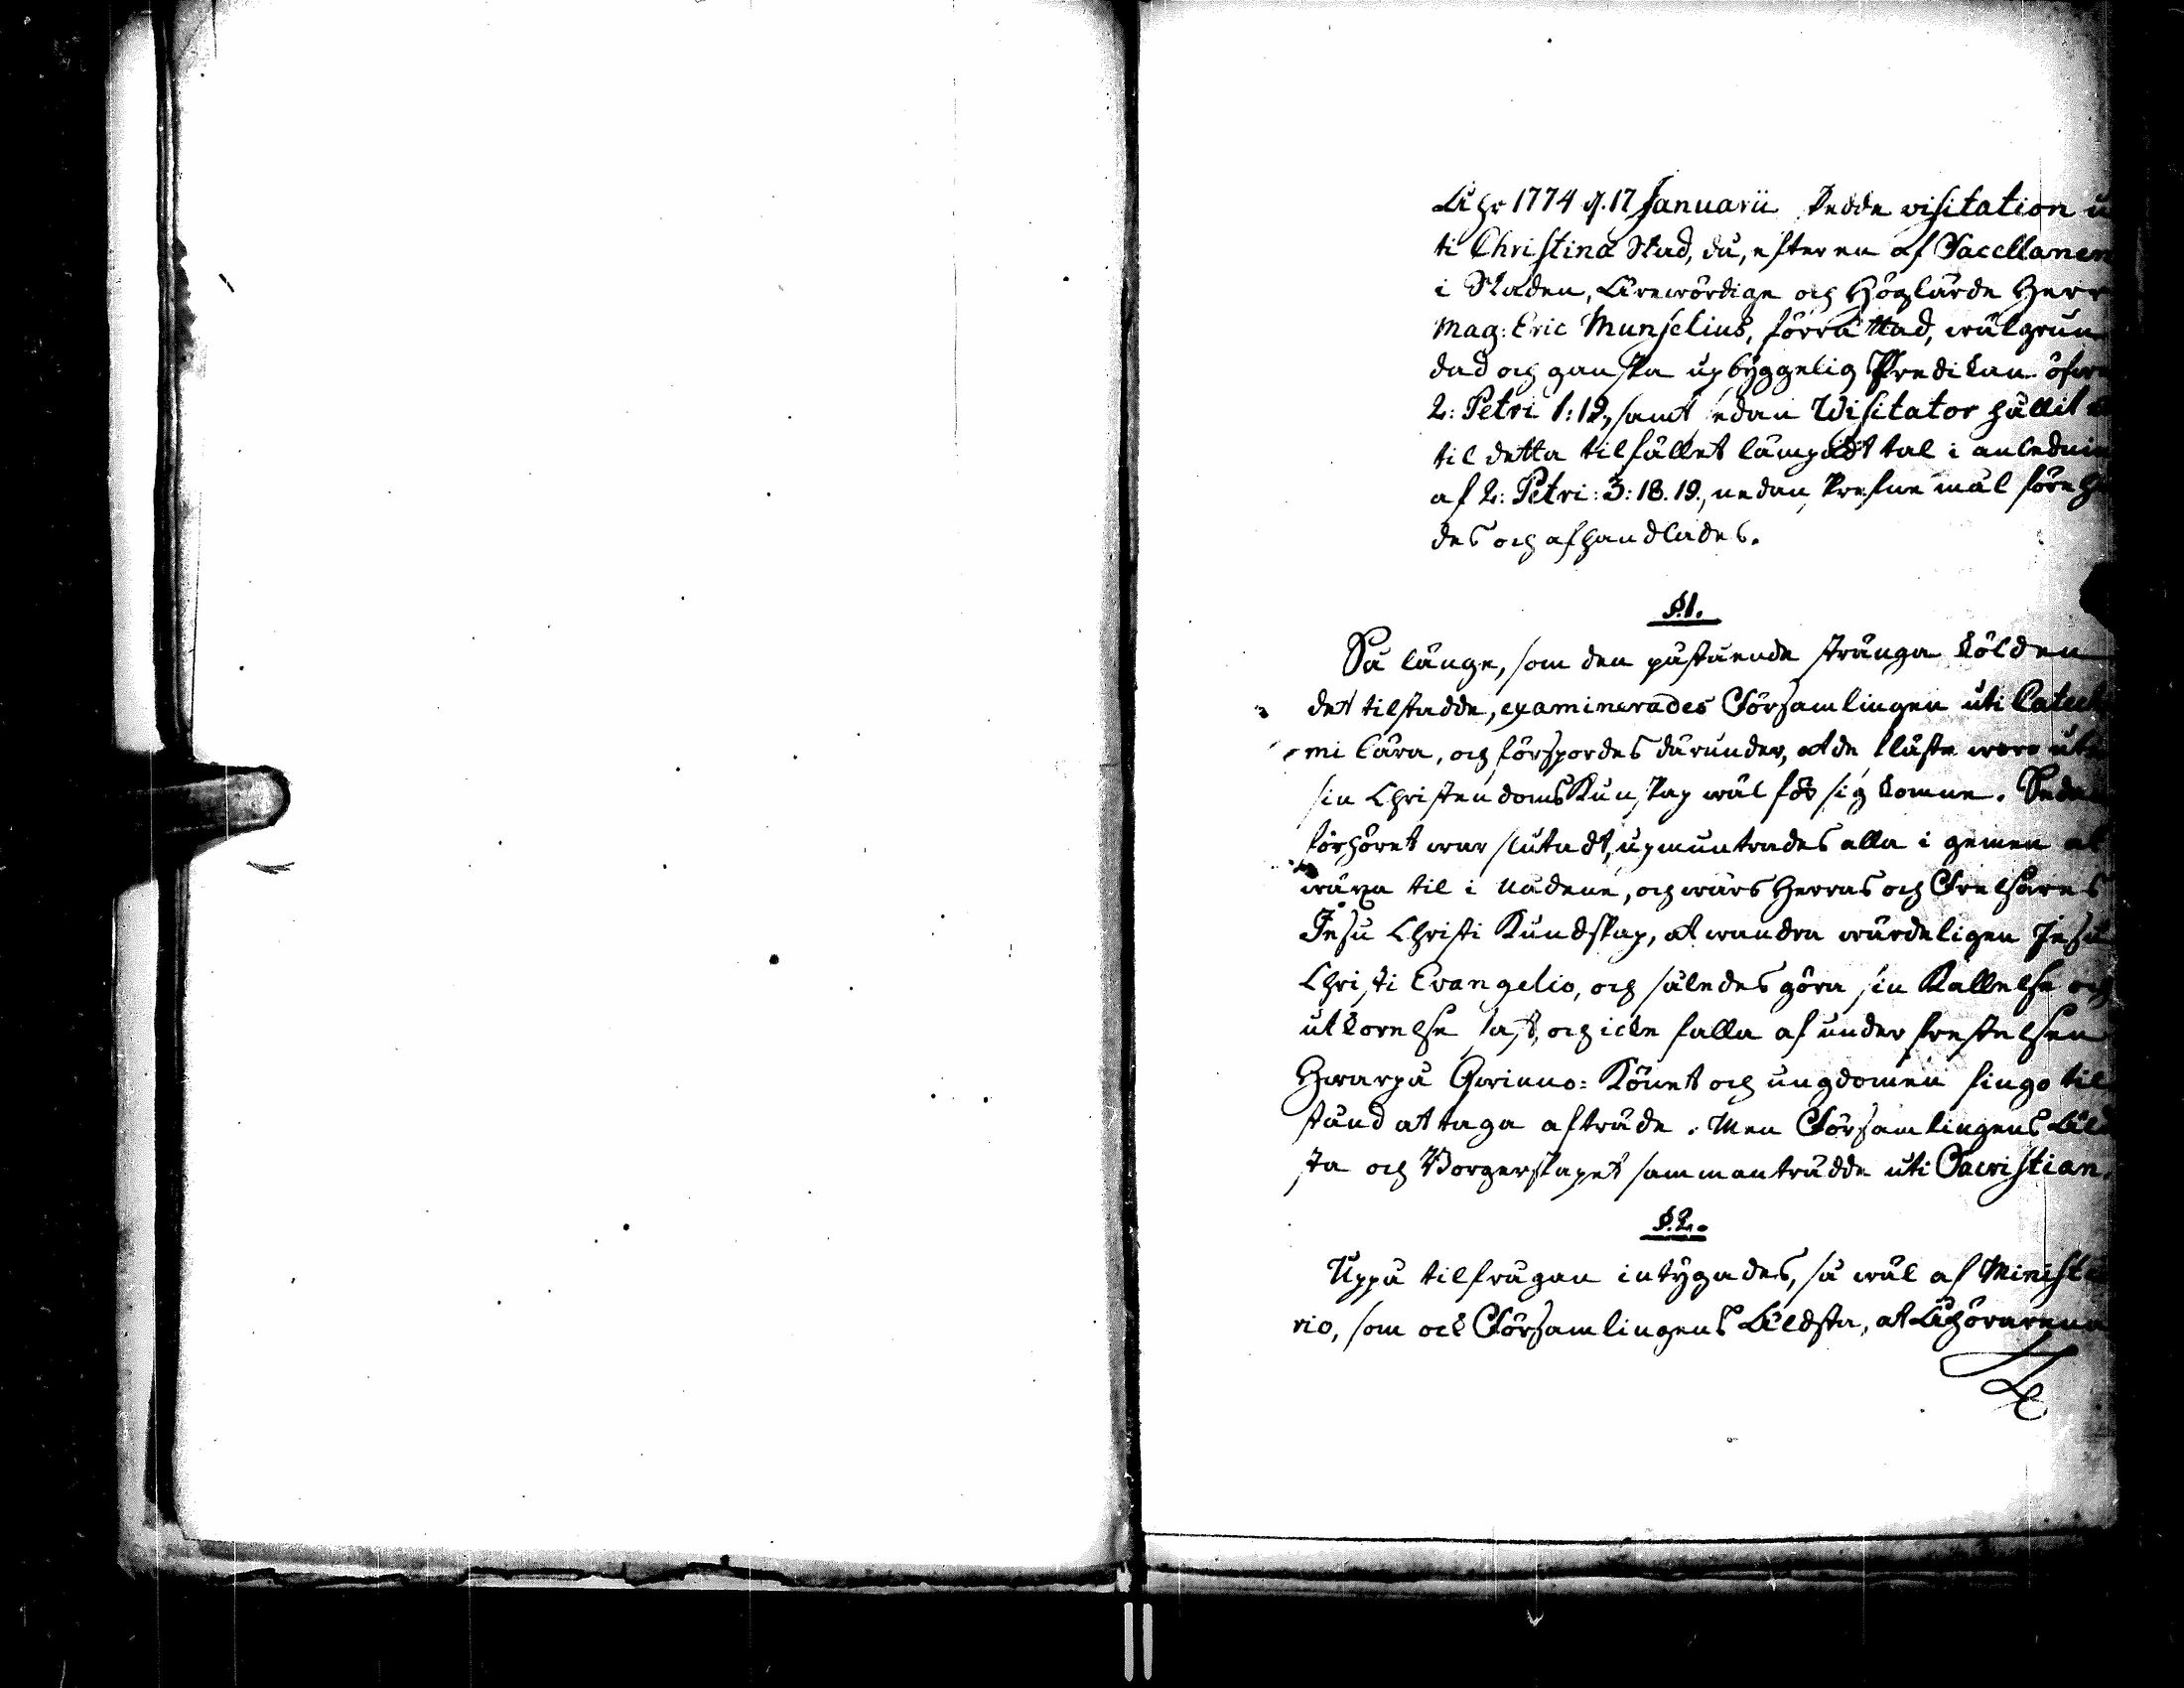 Åhr 1774 d. 17 Januarii skedde visitation u
ti Christinæ Stad, då, efter en af Sacellanen
i Staden, Ärewördige och Höglärde Herr
Mag: Eric Munselius, förrättad, wälgrun
dad och ganska upbyggelig Predikan öfwer
2: Petri 1: 19, samt sedan Visitator hållit
til detta tilfället lämpadt tal i anledning
af 2: Petri: 3: 18. 19., nedanskrefne mål föreha
des och afhandlades.
§.1.
Så länge, som den påstående stränga kölden
det tilstadde, examinerades Församlingen uti Cateche
mi lära, och förspordes därunder, at de fläste woro uti
sin Christendoms Kunskap wäl för sig komne. Sedan
förhöret war slutadt, upmuntrades alla i gemen at
wäxa til i nådene, och wårs Herras och Frelsares
Jesu Christi Kundskap, at wandra wärdeligen Jesu
Christi Evangelio, och således göra sin Kallelse och
utkorelse fast, och icke falla af under frestelsen
Hwarpå Qwinno-Könet och ungdomen fingo til
stånd at taga afträde. Men Församlingens Äld
sta och Borgerskapet sammanträdde uti Sacristian.
§.2.
Uppå tilfrågan intygades, så wäl af Ministe
rio, som ock Församlingens Äldsta, at Åhörarena